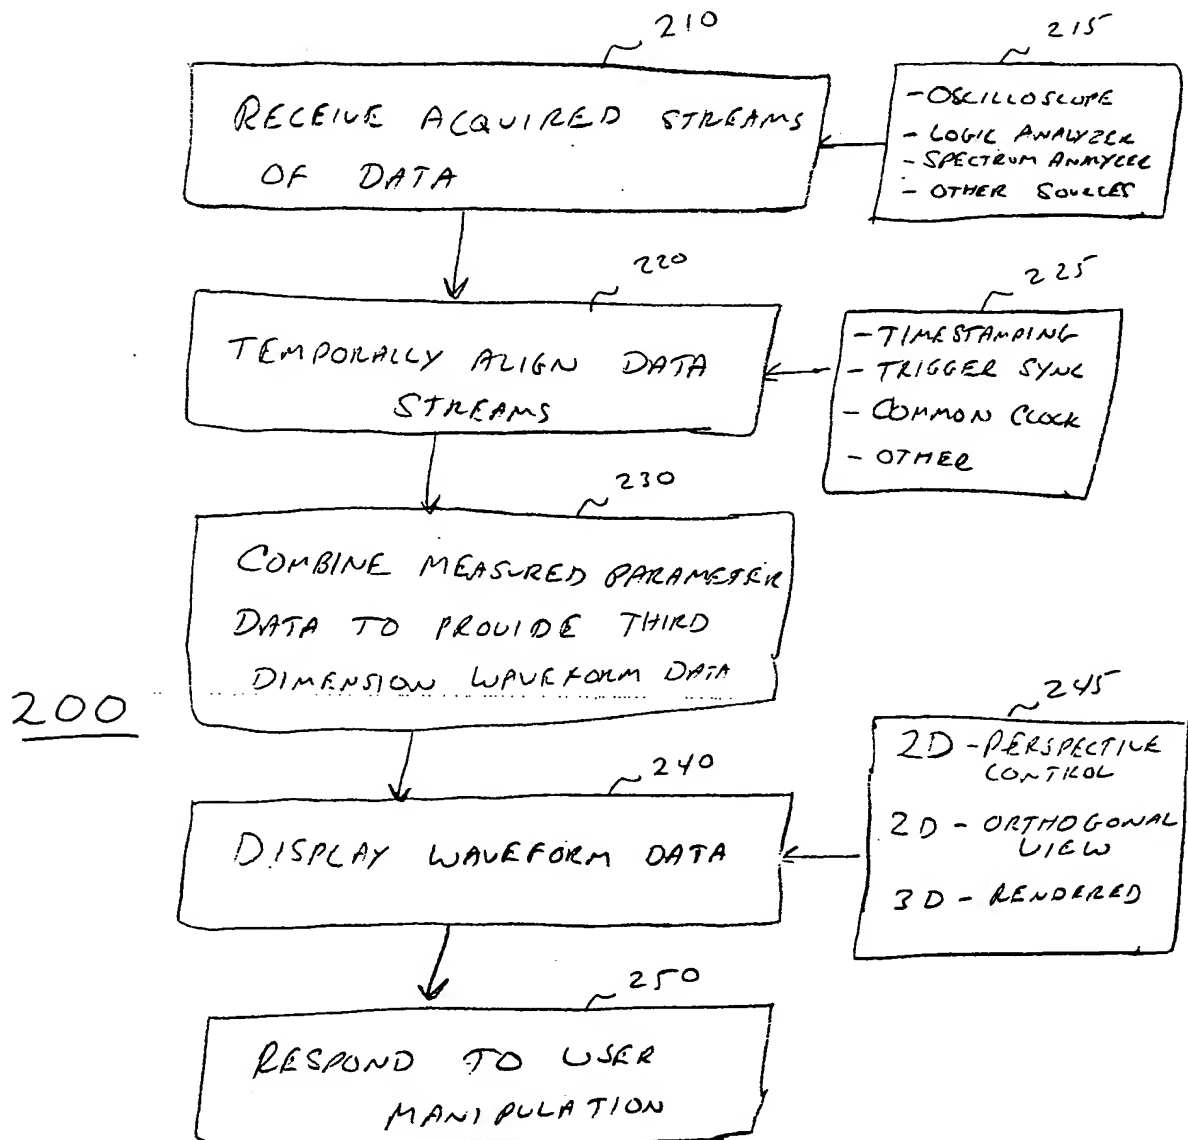 210
RECEIVE ACQUIRED STREAMS
OF DATA
215
- OSCILLOSCOPE
- LOGIC ANALYZER
- SPECTRUM ANALYZER
- OTHER SOURCES
220
TEMPORALLY ALIGN DATA
STREAMS
225
- TIMESTAMPING
- TRIGGER SYNC
- COMMON CLOCK
- OTHER
230
COMBINE MEASURED PARAMETER
DATA TO PROVIDE THIRD
DIMENSION WAVEFORM DATA
200
240
DISPLAY WAVEFORM DATA
245
2D - PERSPECTIVE
CONTROL
2D - ORTHOGONAL
VIEW
3D - RENDERED
250
RESPOND TO USER
MANIPULATION